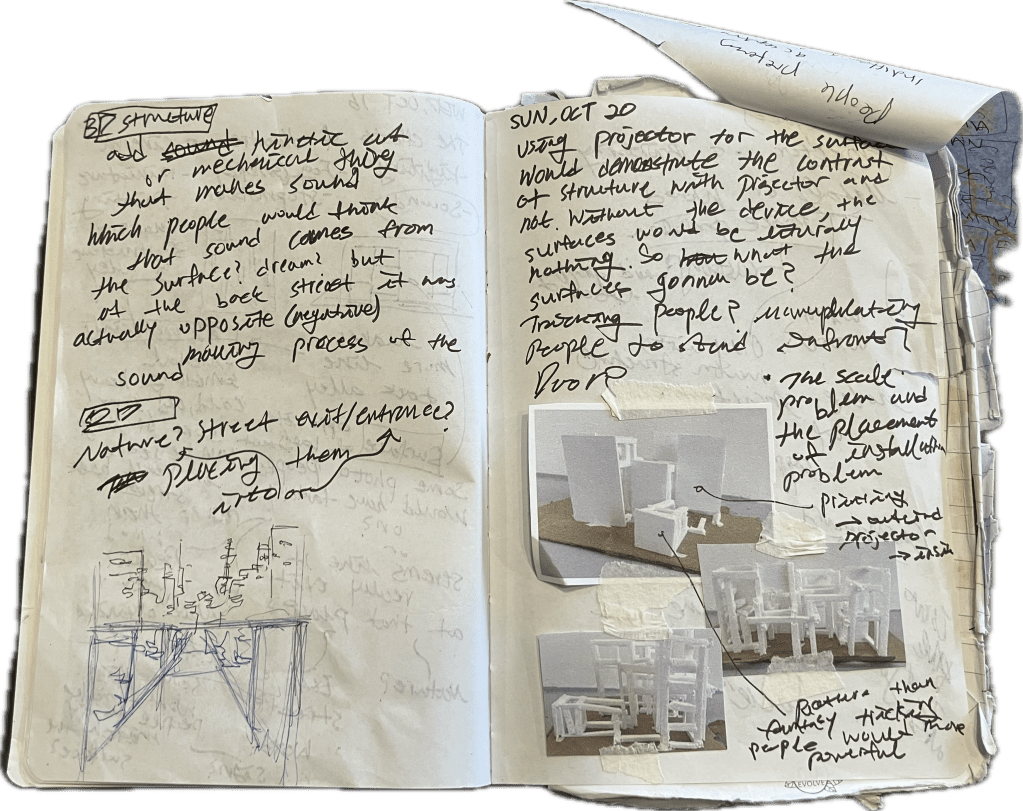 3D structure
add sound kinetic art
or mechanical thing
that makes sound
which people would think
that sound comes from
the surface? dream? but
at the back street it was
actually opposite (negative)
making process of the
sound
2D
Nature? street exit/entrance?
Placing them
into or
SUN, OCT 20
using projector for the surface
would demonstrate the contrast
of structure with projector and
not. without the device, the
surfaces would be literally
nothing. So what the
surfaces gonna be?
Tricking people? manuplating
people to stand infront?
Door?
• The scale
problem and
the placement
of installation
problem
printing
→ outend
projector
→ insi
Rather than
fantasy tricking
people would more
powerful
people
pretend
EVOLVE